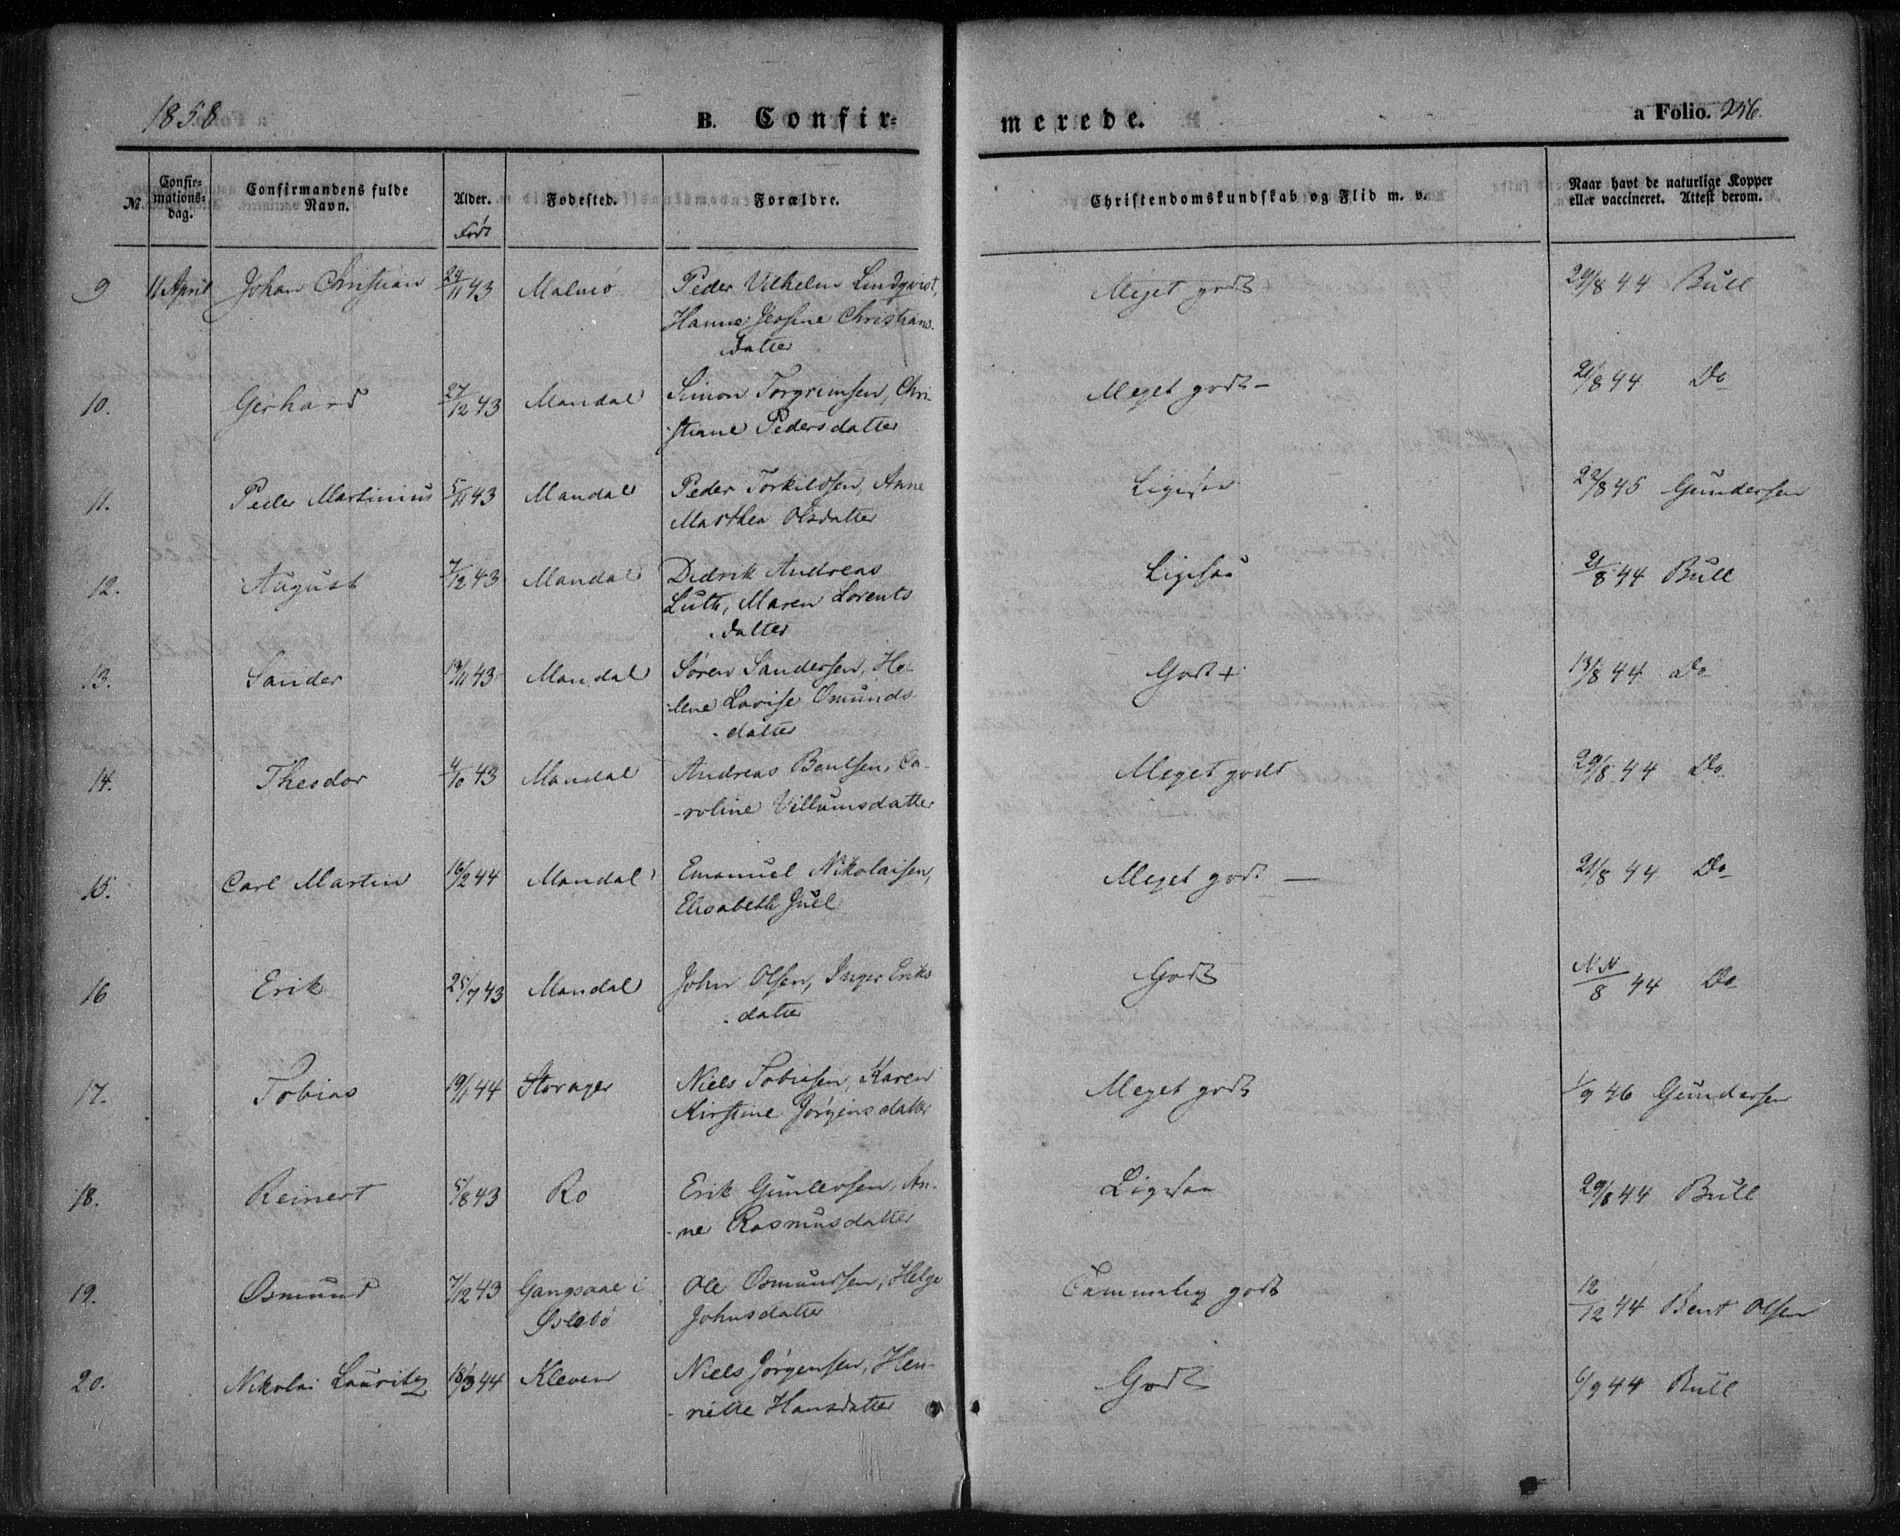 1858
B. Confir=
merede.
a Folio. 256.
№
Confir=
mations=
dag.
Confirmandens fulde
Navn.
Alder.
Født
Fødested.
Forældre.
Christendomskundskab og Flid m. v.
Naar havt de naturlige Kopper
eller vaccineret. Attest derom.
9 11 April Johan Christian 24/11 43 Malmø Peder Vilhelm Lindqvist, Meget godt 29/8 44 Bull
Hanne Jessine Christians-
datter
10. Gerhard 27/12 43 Mandal Simon Torgrimsen, Chri- Meget godt - 21/8 44 Do
-stiane Pedersdatter
11. Peder Martinius 5/11 43 Mandal Peder Torkildsen, Anne Ligesaa 22/8 45 Gundersen
Marthea Olsdatter
12. August 7/12 43 Mandal Didrik Andreas Ligesaa 21/8 44 Bull
Luth, Maren Lorents
-datter
13. Sander 19/11 43 Mandal Søren Sandersen, He- Godt + 13/8 44 do
-lene Lovise Omunds
-datter
14. Theodor 4/10 43 Mandal Andreas Bentsen, Ca- Meget godt 29/8 44 Do
-roline Villumsdatter
15. Carl Martin 16/2 44 Mandal Emanuel Nikolaisen, Meget godt - 21/8 44 Do
Elisabeth Juel
16 Erik 25/7 43 Mandal John Olsen, Inger Eriks Godt NN/8 44 Do
-datter
17. Tobias 19/1 44 Storager Niels Tobiasen, Karen Meget godt 1/9 46 Gundersen
Kirstine Jørgensdatter
18. Reinert 5/8 43 Ro Erik Gunlevsen, An- Ligesaa 29/8 44 Bull
-ne Rasmusdatter
19. Osmund 7/12 43 Gangsaae i Ole Osmundsen, Helge Temmelig godt 12/12 44 Bent Olsen
Øslebø Johnsdatter
20. Nikolai Lauritz 18/3 44 Kleven Niels Jørgensen, Hen- Godt 6/9 44 Bull
-riette Hansdatter